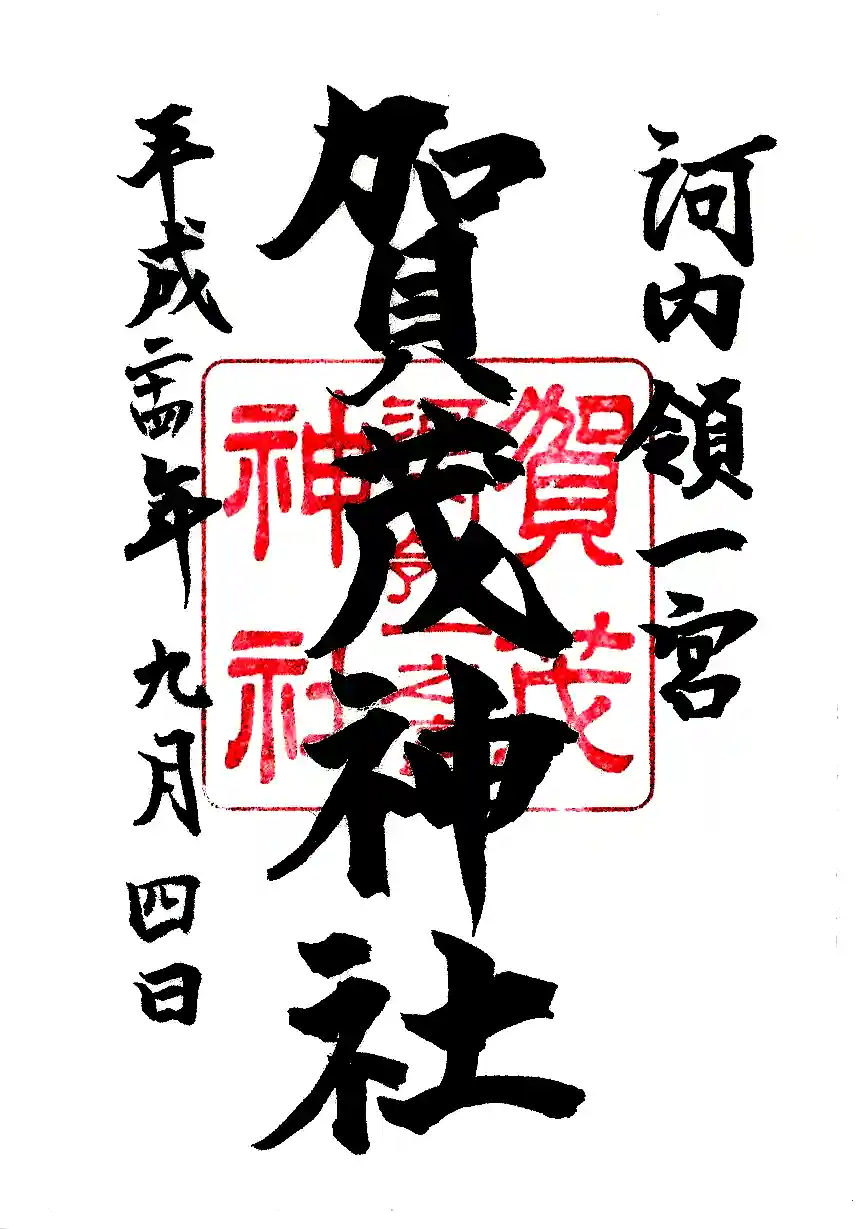 訶内領一宮
賀茂神社
平成二十四年九月四日
賀茂
神社